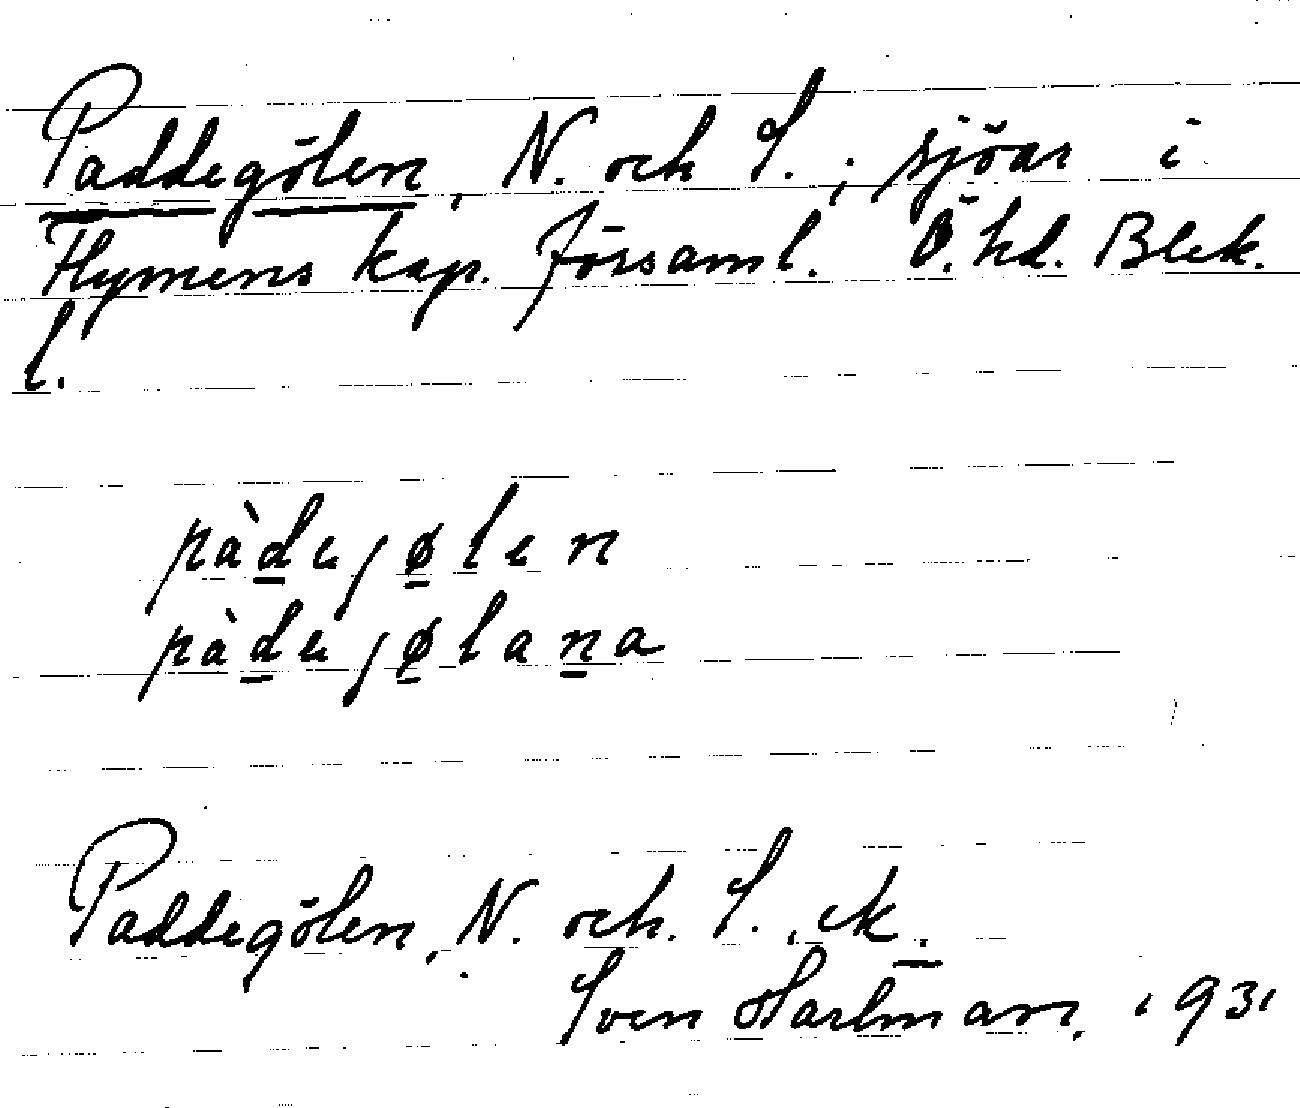 Paddegölen, N. och S., sjöar i
Flymens kap. församl. Ö. hd. Blek.
l.
pàdejølen
pàdejølana
Paddegölen, N. och. S., ek.
Sven Hartman, 1931